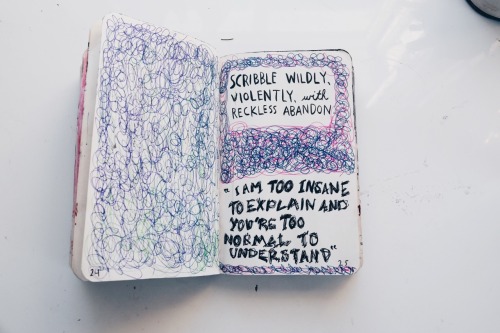 SCRIBBLE WILDLY,
VIOLENTLY, with
RECKLESS ABANDON
"I AM TOO INSANE
TO EXPLAIN AND
YOU'RE TOO
NORMAL TO
UNDERSTAND"
24
25